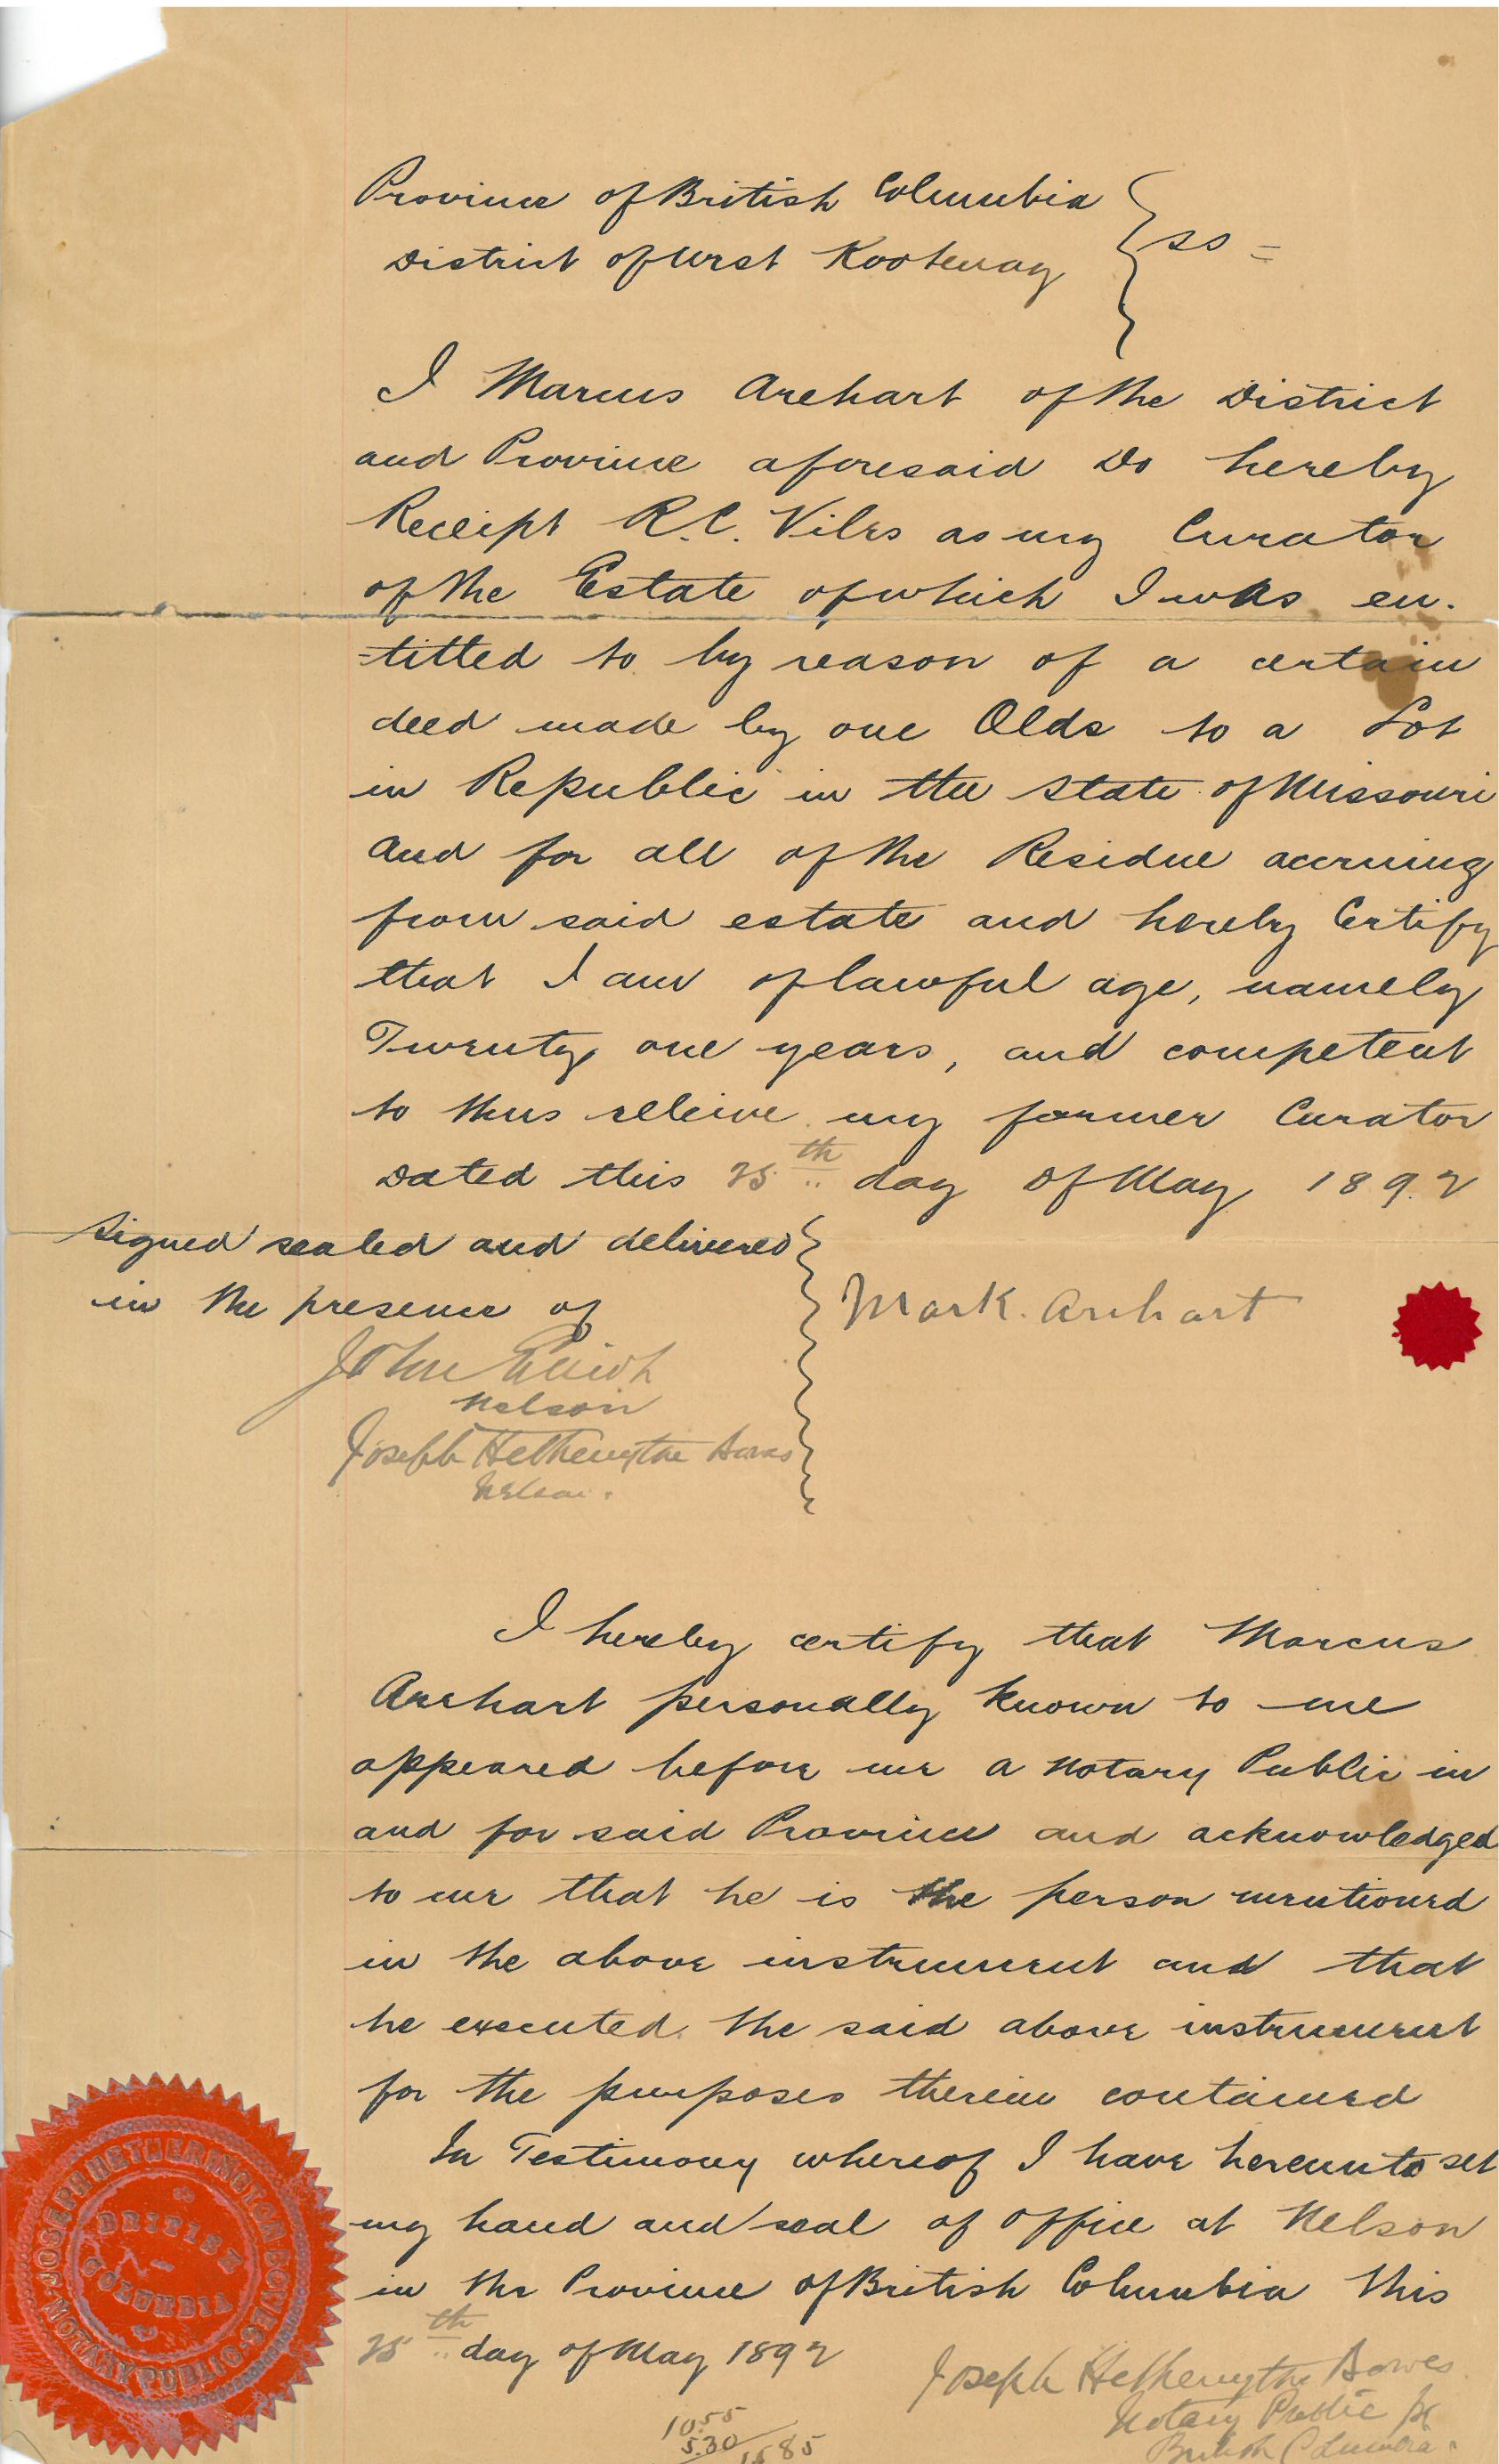 Province of British Columbia
District of West Kootenay } ss =
I Marcus Arehart of the District
and Province aforesaid do hereby
Receipt R.C. Viles as my Curator
of the Estate of which I was en-
=titled to by reason of a certain
deed made by one Olds to a Lot
in Republic in the State of Missouri
and for all of the Residue accruing
from said estate and hereby Certify
that I am of lawful age, namely
Twenty one years, and competent
to thus releive my former Curator
Dated this 25th day of May 1892
Signed sealed and delivered
in the presence of
Mark. Arehart
John
Nelson
Joseph Hetherington Bowes
Nelson.
I hereby certify that Marcus
Arehart personally known to me
appeared before me a Notary Public in
and for said Province and acknowledged
to me that he is the person mentioned
in the above instrument and that
he executed the said above instrument
for the purposes therein contained
In Testimony whereof I have hereunto set
my hand and seal of office at Nelson
in the Province of British Columbia this
25th day of May 1892
Joseph Hetherington Bowes
Notary Public for
British Columbia.
10.55
5.30
15.85
JOSEPH HETHERINGTON BOWES
NOTARY PUBLIC
BRITISH
COLUMBIA